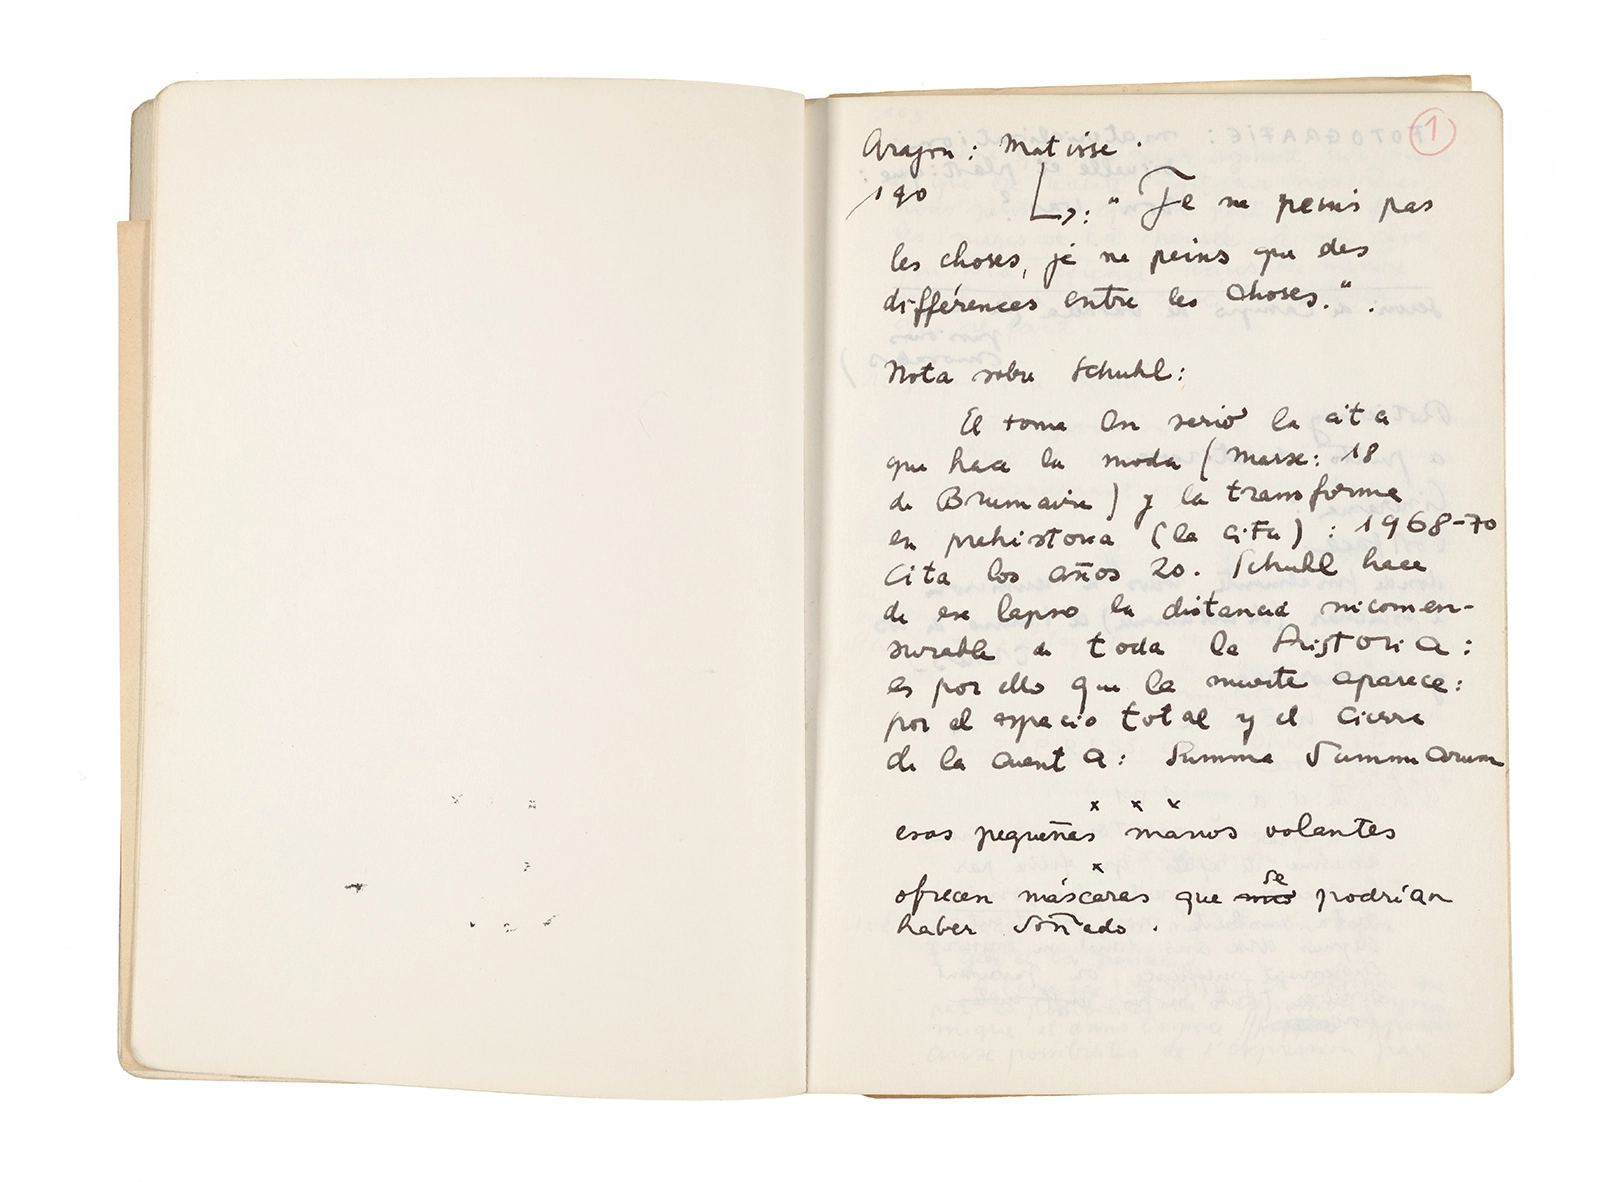 1
Aragon : Matisse.
190
↳: " Je ne peins pas
les choses, je ne peins que des
différences entre les choses." .
Nota sobre Schuhl:
El toma en serio la cita
que hace la moda (Marx: 18
de Brumaire) y la transforma
en prehistoria (la cita) : 1968-70
Cita los años 20. Schuhl hace
de ese lapso la distancia incomen-
surable de toda la historia:
es por ello que la muerte aparece:
por el espacio total y el cierre
de la cuenta: Summa Summarum
x x x
esas pequeñas manos volantes
x
ofrecen máscaras que se podrían
haber soñado .